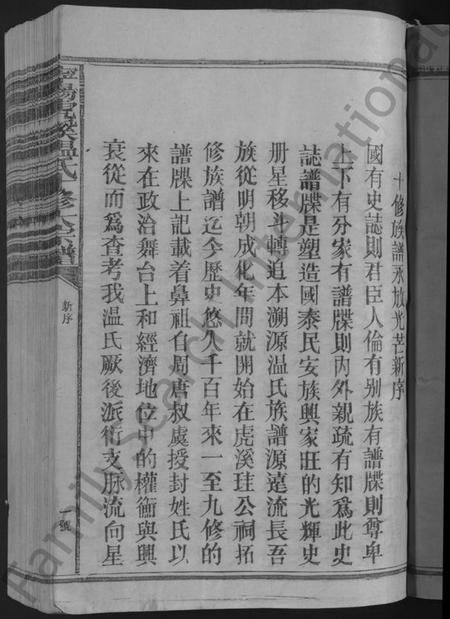 十修族譜永放光芒新序
國有史誌則君臣人倫有别族有譜牒則尊卑
上下有分家有譜牒則内外親疏有知爲此史
誌譜牒是塑造國泰民安族興家旺的光輝史
册星移斗轉追本溯源温氏族譜源遠流長吾
族從明朝成化年間就開始在虎溪珪公祠拓
修族譜迄今歷史悠久千百年來一至九修的
譜牒上記載着鼻祖自周唐叔虞授封姓氏以
來在政治舞台上和經濟地位中的權衡與興
衰從而爲查考我温氏厥後派衍支脈流向星
温氏
修
譜
新序
一號
FamilySearch International